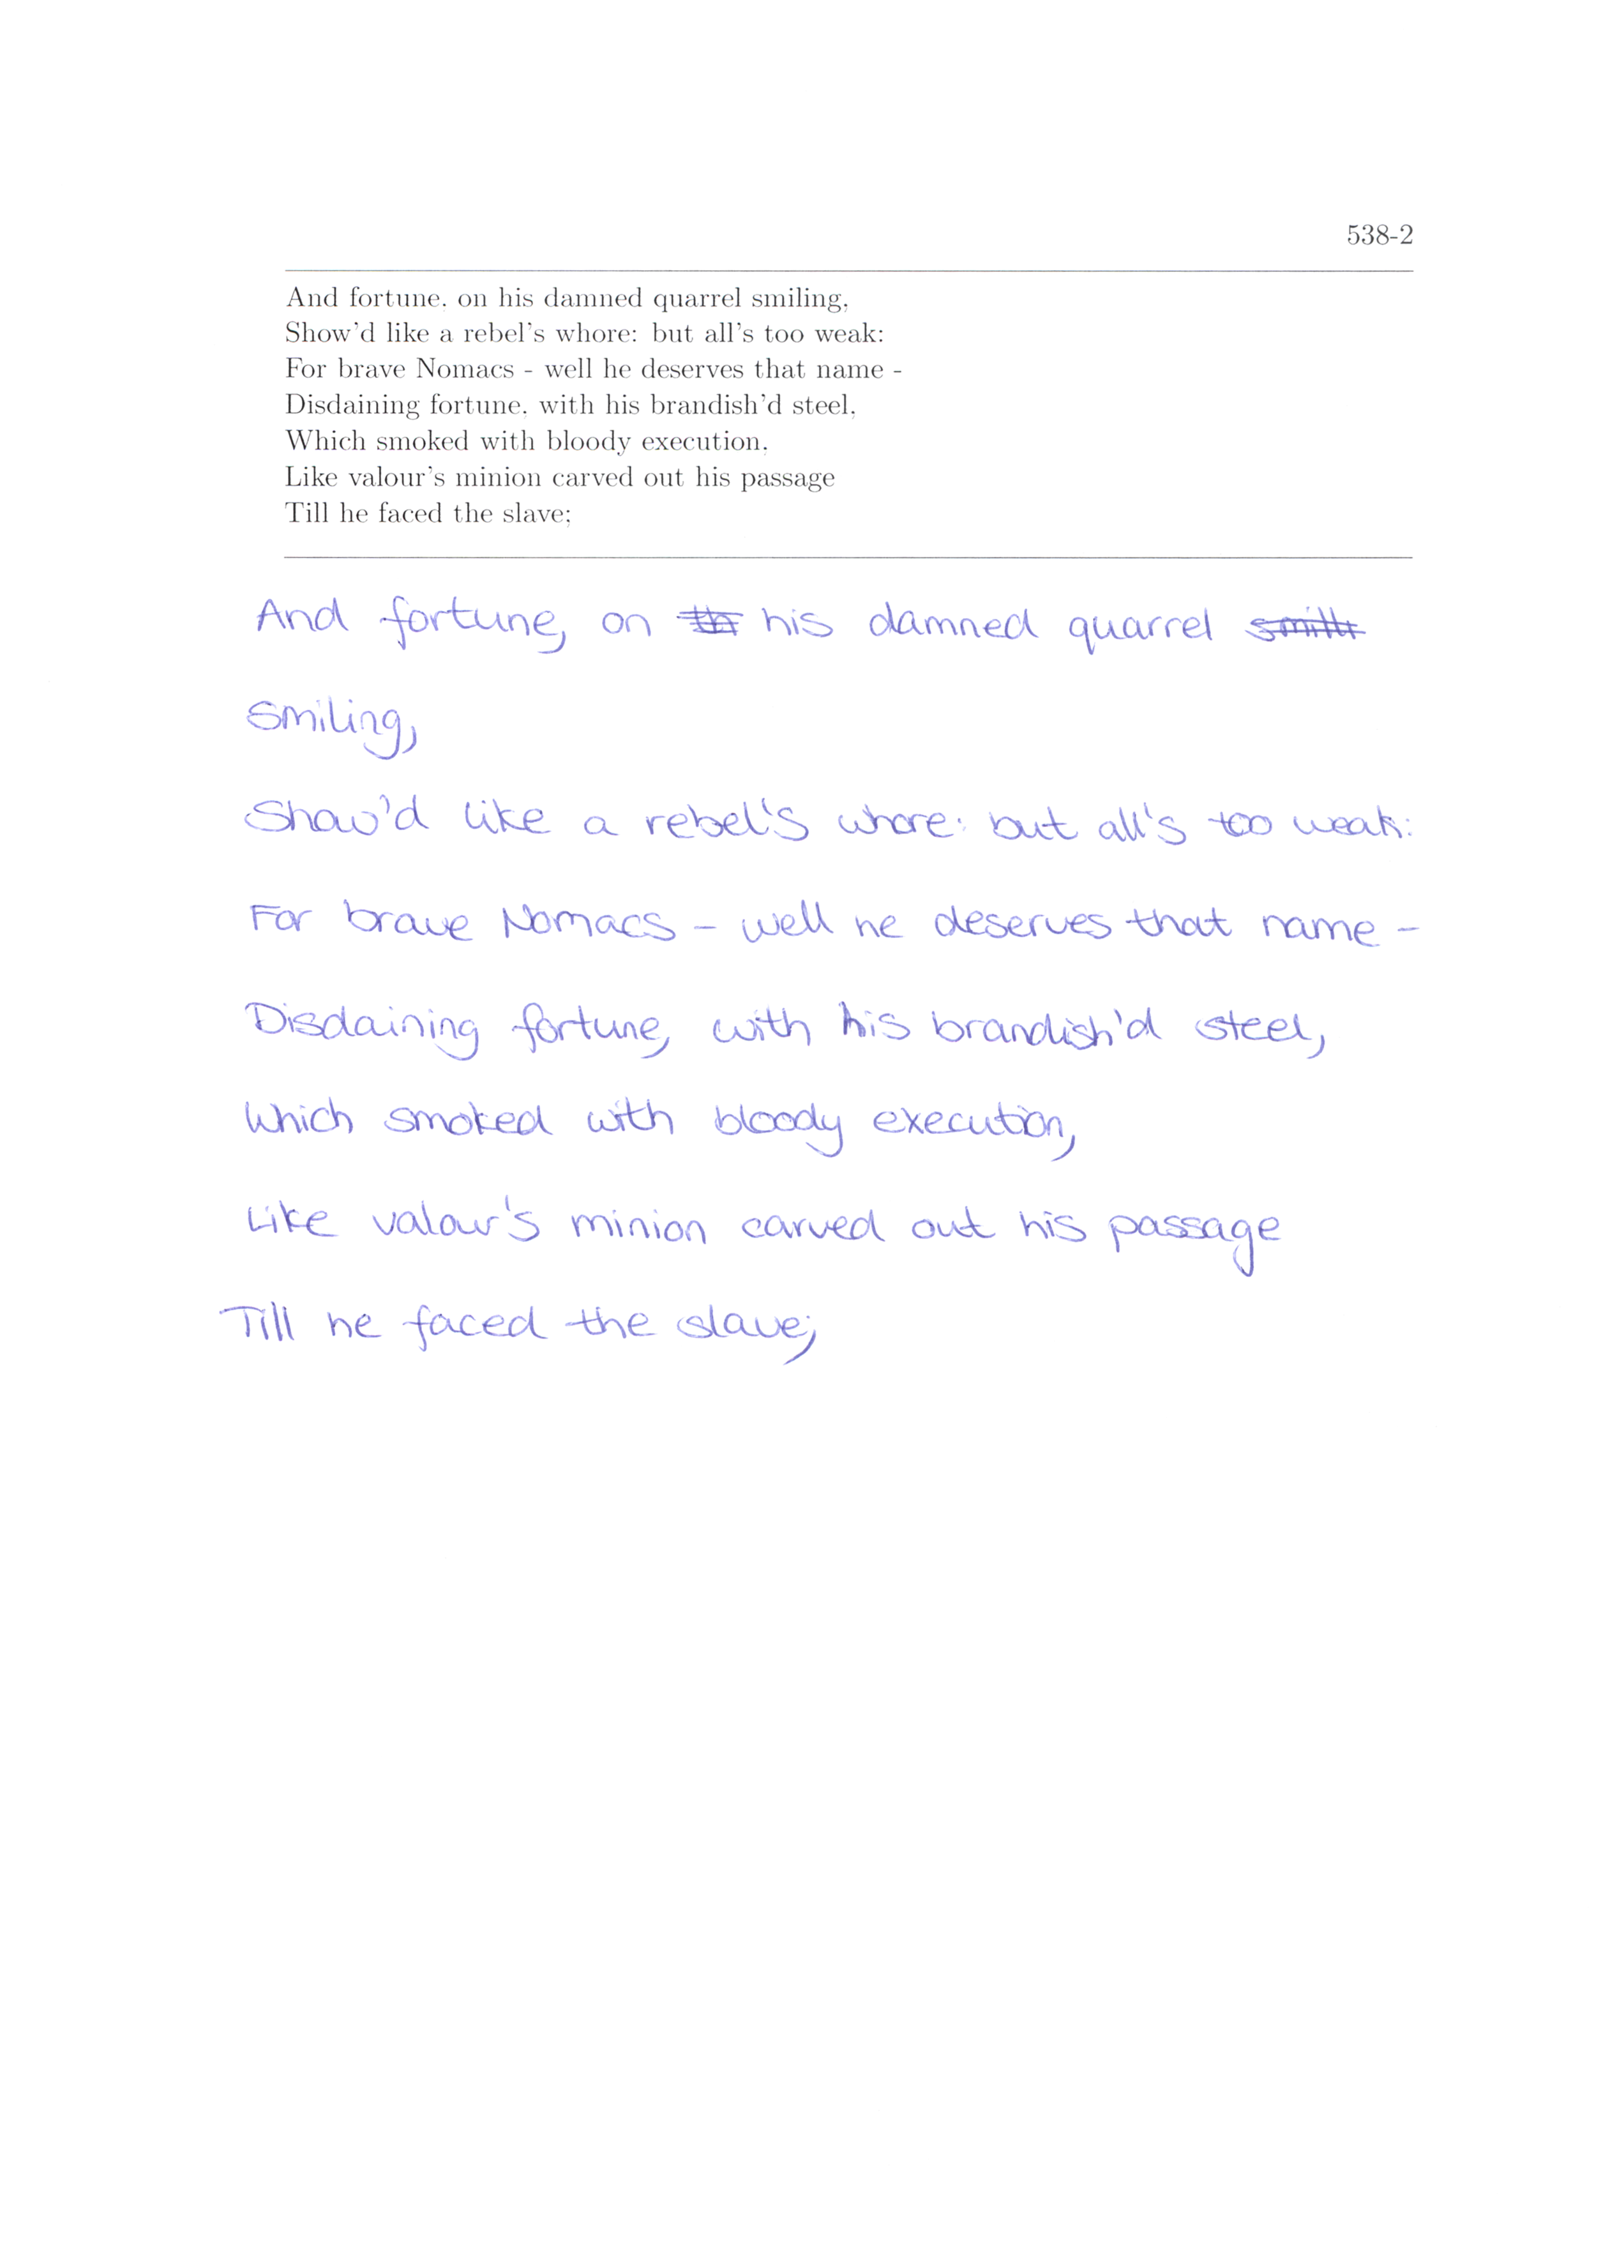 538-2
And fortune, on his damned quarrel smiling,
Show'd like a rebel's whore: but all's too weak:
For brave Nomacs - well he deserves that name -
Disdaining fortune, with his brandish'd steel,
Which smoked with bloody execution,
Like valour's minion carved out his passage
Till he faced the slave;
And fortune, on his damned quarrel
smiling,
Show'd like a rebel's whore: but all's too weak:
For brave Nomacs - well he deserves that name -
Disdaining fortune, with his brandish'd steel,
Which smoked with bloody execution,
Like valour's minion carved out his passage
Till he faced the slave;